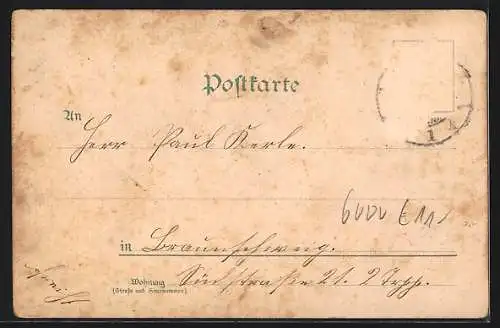 Postkarte
An
Herr Paul Kerle.
6000 E 11
in Braunschweig.
Wohnung
(Straße und Hausnummer)
Südstraße 21. 2 Trpp.